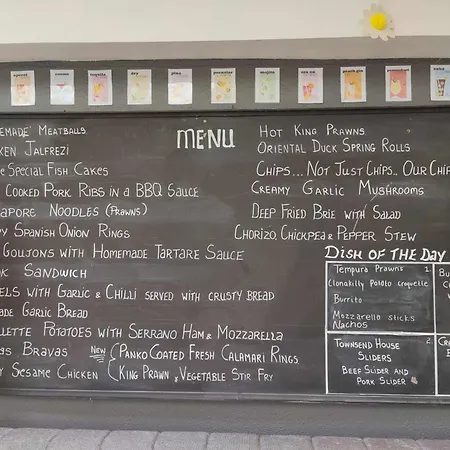 MENU
EMADE MEATBALLS
KEN JALFREZI
E SPECIAL FISH CAKES
COOKED PORK RIBS IN A BBQ SAUCE
APORE NOODLES (PRAWNS)
Y SPANISH ONION RINGS
GOUJONS WITH HOMEMADE TARTARE SAUCE
K SANDWICH
ELS WITH GARLIC & CHILLI SERVED WITH CRUSTY BREAD
ADE GARLIC BREAD
LETTE POTATOES WITH SERRANO HAM & MOZZARELLA
AS BRAVAS NEW (PANKO COATED FRESH CALAMARI RINGS
Y SESAME CHICKEN (KING PRAWN & VEGETABLE STIR FRY
HOT KING PRAWNS
ORIENTAL DUCK SPRING ROLLS
CHIPS... NOT JUST CHIPS.. OUR CHIP
CREAMY GARLIC MUSHROOMS
DEEP FRIED BRIE WITH SALAD
CHORIZO, CHICKPEA & PEPPER STEW
DISH OF THE DAY
TEMPURA PRAWNS 1.
CLONAKILTY POTATO CROQUETTE
BURRITO
MOZZARELLA STICKS
NACHOS
TOWNSEND HOUSE 2.
SLIDERS
BEEF SLIDER AND
PORK SLIDER